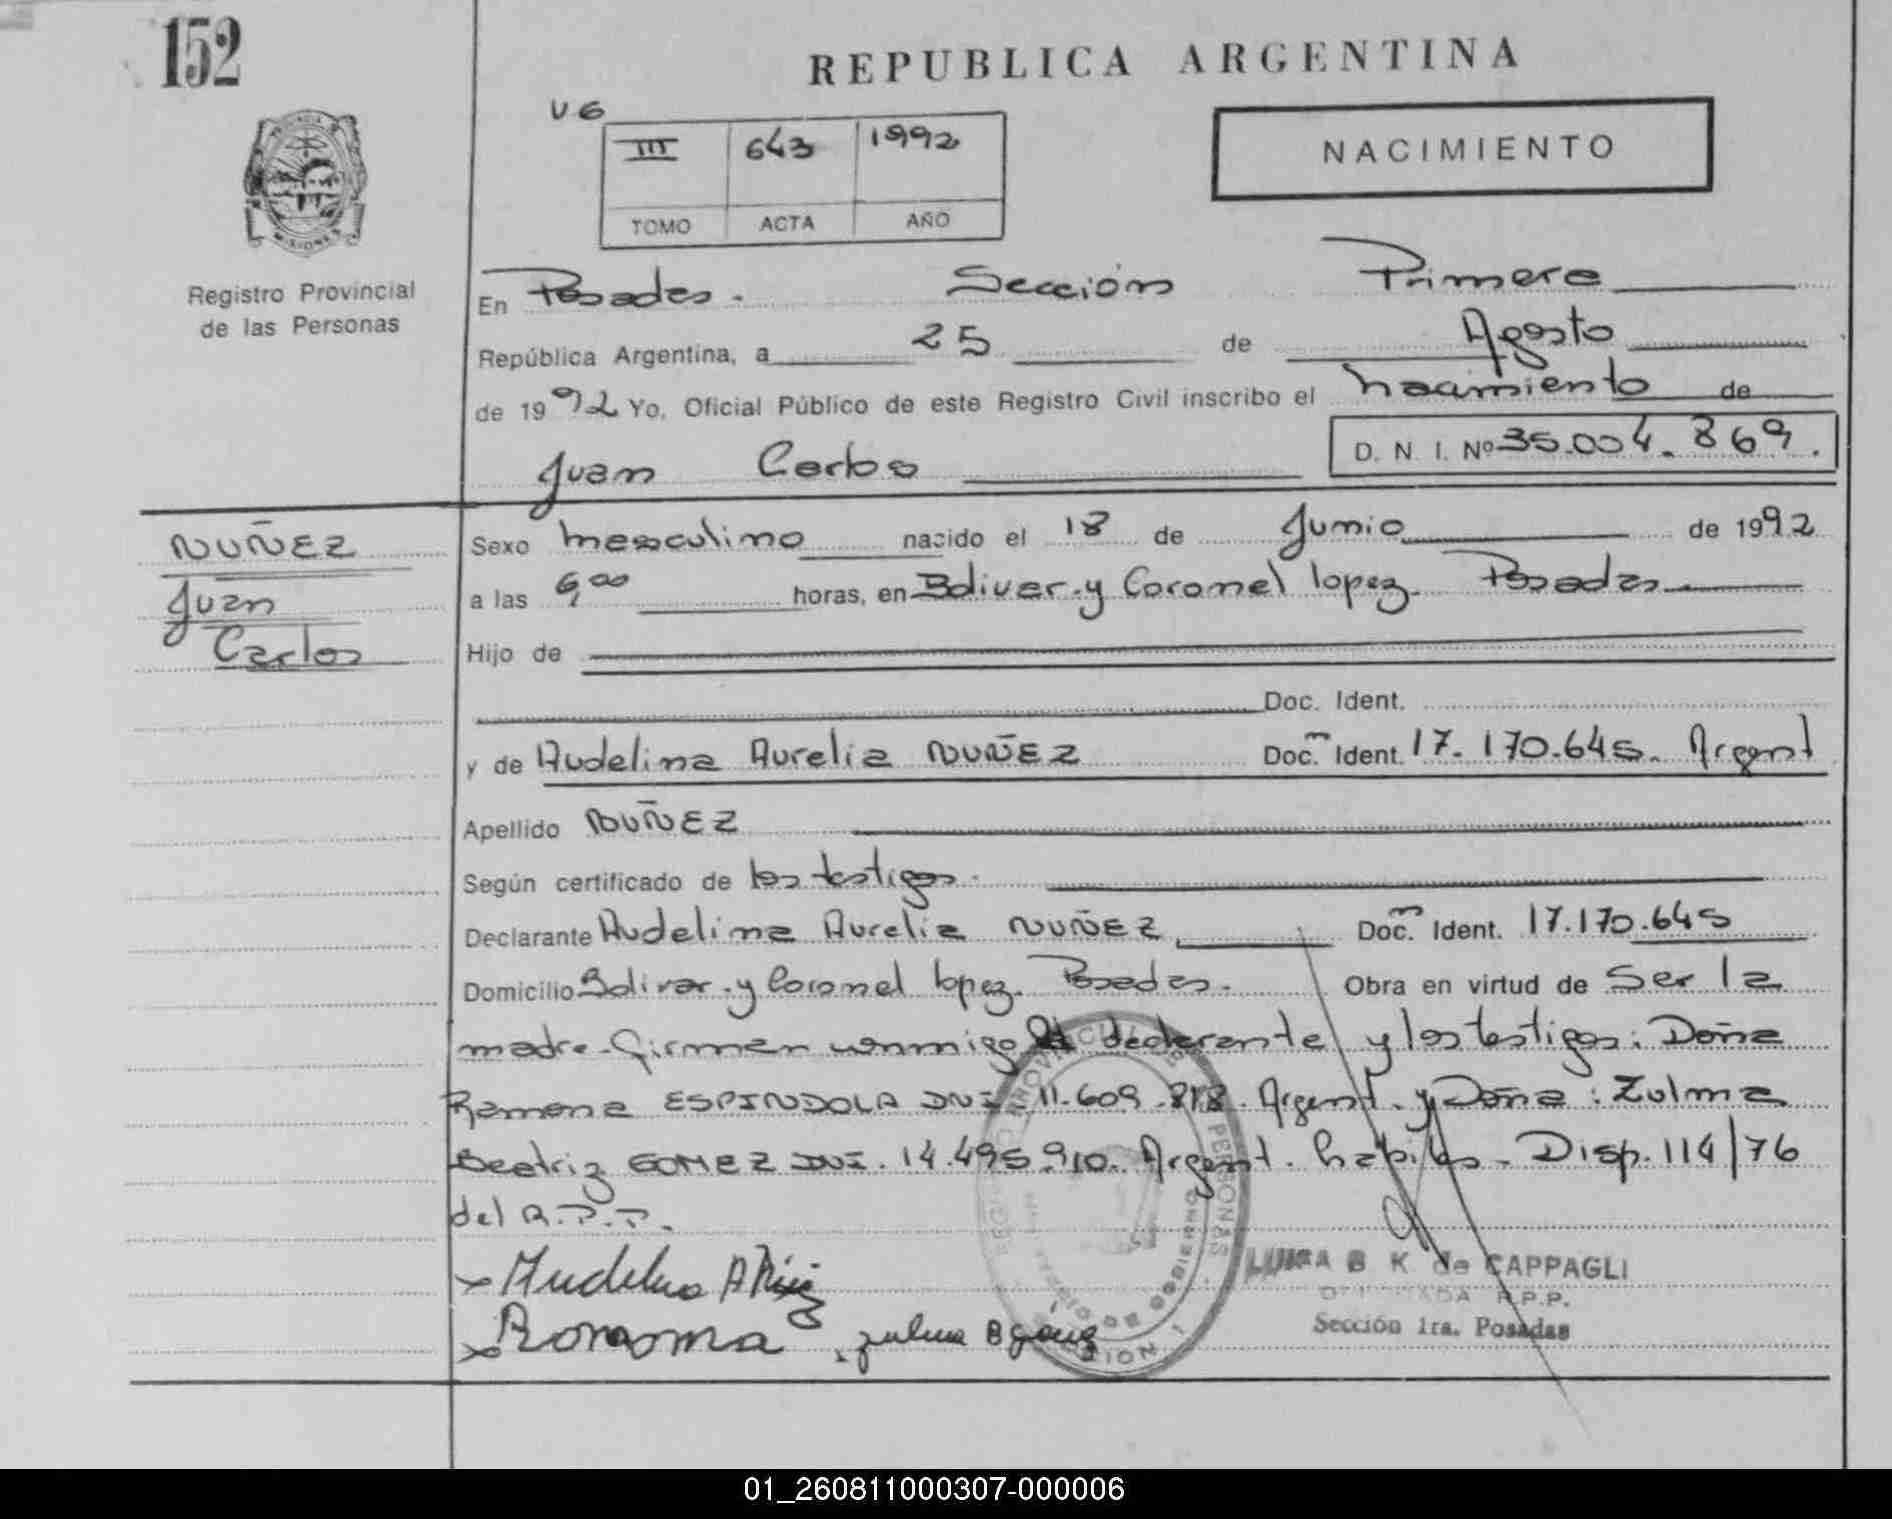 152
REPUBLICA ARGENTINA
V 6
III 643 1992
TOMO ACTA AÑO
NACIMIENTO
PROVINCIA DE
MISIONES
Registro Provincial
de las Personas
En Posadas. Sección Primera
República Argentina, a 25 de Agosto
de 1992 Yo, Oficial Público de este Registro Civil inscribo el nacimiento de
Juan Carlos D. N. I. Nº 35.004.869.
NUÑEZ
Juan
Carlos
Sexo masculino nacido el 18 de Junio de 1992
a las 6,00 horas, en Bolivar y Coronel lopez. Posadas
Hijo de
Doc. Ident.
y de Audelina Aurelia NUÑEZ Doc. Ident. 17.170.645. Argent
Apellido NUÑEZ
Según certificado de los testigos.
Declarante Audelina Aurelia NUÑEZ, Doc. Ident. 17.170.645
Domicilio Bolivar y Coronel lopez. Posadas. Obra en virtud de Ser la
madre. Firman conmigo la declarante y los testigos: Doña
Ramona ESPINDOLA DNI 11.609.818. Argent. y Doña: Zulma
Beatriz GOMEZ DNI. 14.495.910. Argent. habiles. Disp. 114/76
del R.P.P.
Ramona
zulma B gomez
LUISA B K de CAPPAGLI
R.P.P.
Sección 1ra. Posadas
01_260811000307-000006